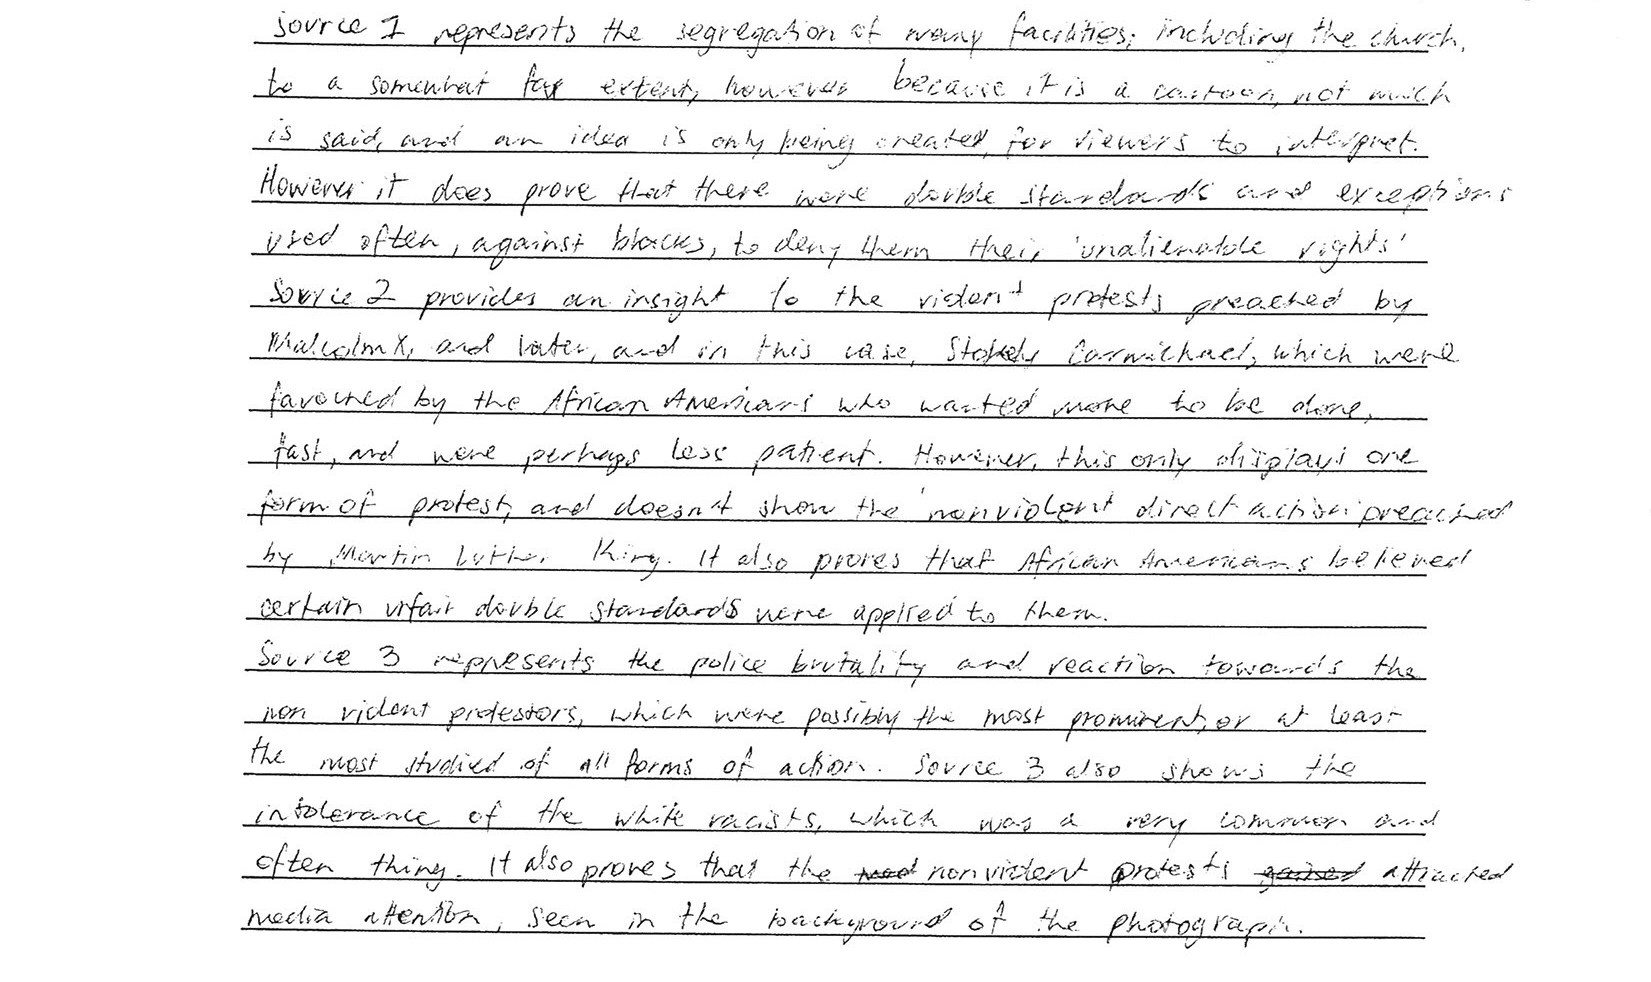 Source 1 represents the segregation of many facilities; including the church,
to a somewhat far extent, however because it is a cartoon, not much
is said, and an idea is only being created, for viewers to interpret.
However it does prove that there were double standards and exceptions
used often, against blacks, to deny them their 'unalienable rights'
Source 2 provides an insight to the violent protests preached by
Malcolm X, and later, and in this case, Stokely Carmichael, which were
favoured by the African Americans who wanted more to be done,
fast, and were perhaps less patient. However, this only displays one
form of protest, and doesn't show the 'nonviolent direct action' preached
by Martin Luther King. It also proves that African Americans believed
certain unfair double standards were applied to them.
Source 3 represents the police brutality and reaction towards the
non violent protestors, which were possibly the most prominent, or at least
the most studied of all forms of action. Source 3 also shows the
intolerance of the white racists, which was a very common and
often thing. It also proves that the nonviolent protests gained attracted
media attention, seen in the background of the photograph.